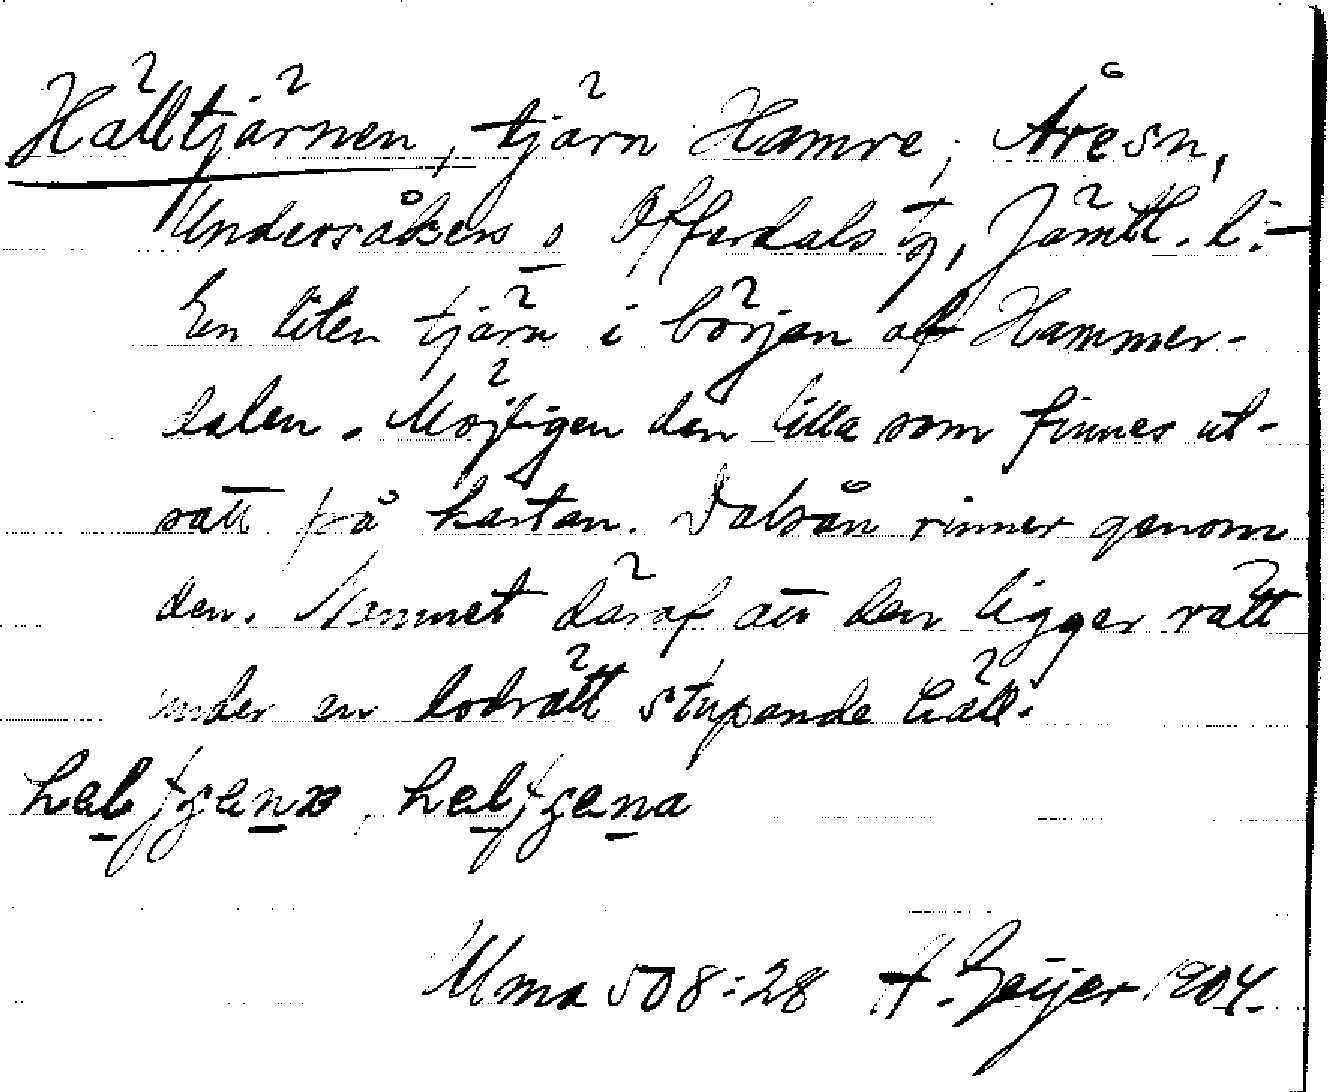 Hälltjärnen, tjärn Hamre, Åresn,
Undersåkers o Offerdals tg, Jämtl. l:
En liten tjärn i början af Hammer-
dalen. Möjligen den lilla som finnes ut-
satt på kartan. Dalsån rinner genom
den. Namnet däraf att den ligger rätt
under en lodrätt stupande häll.
Ulma 508:28 A. Geijer 1904.